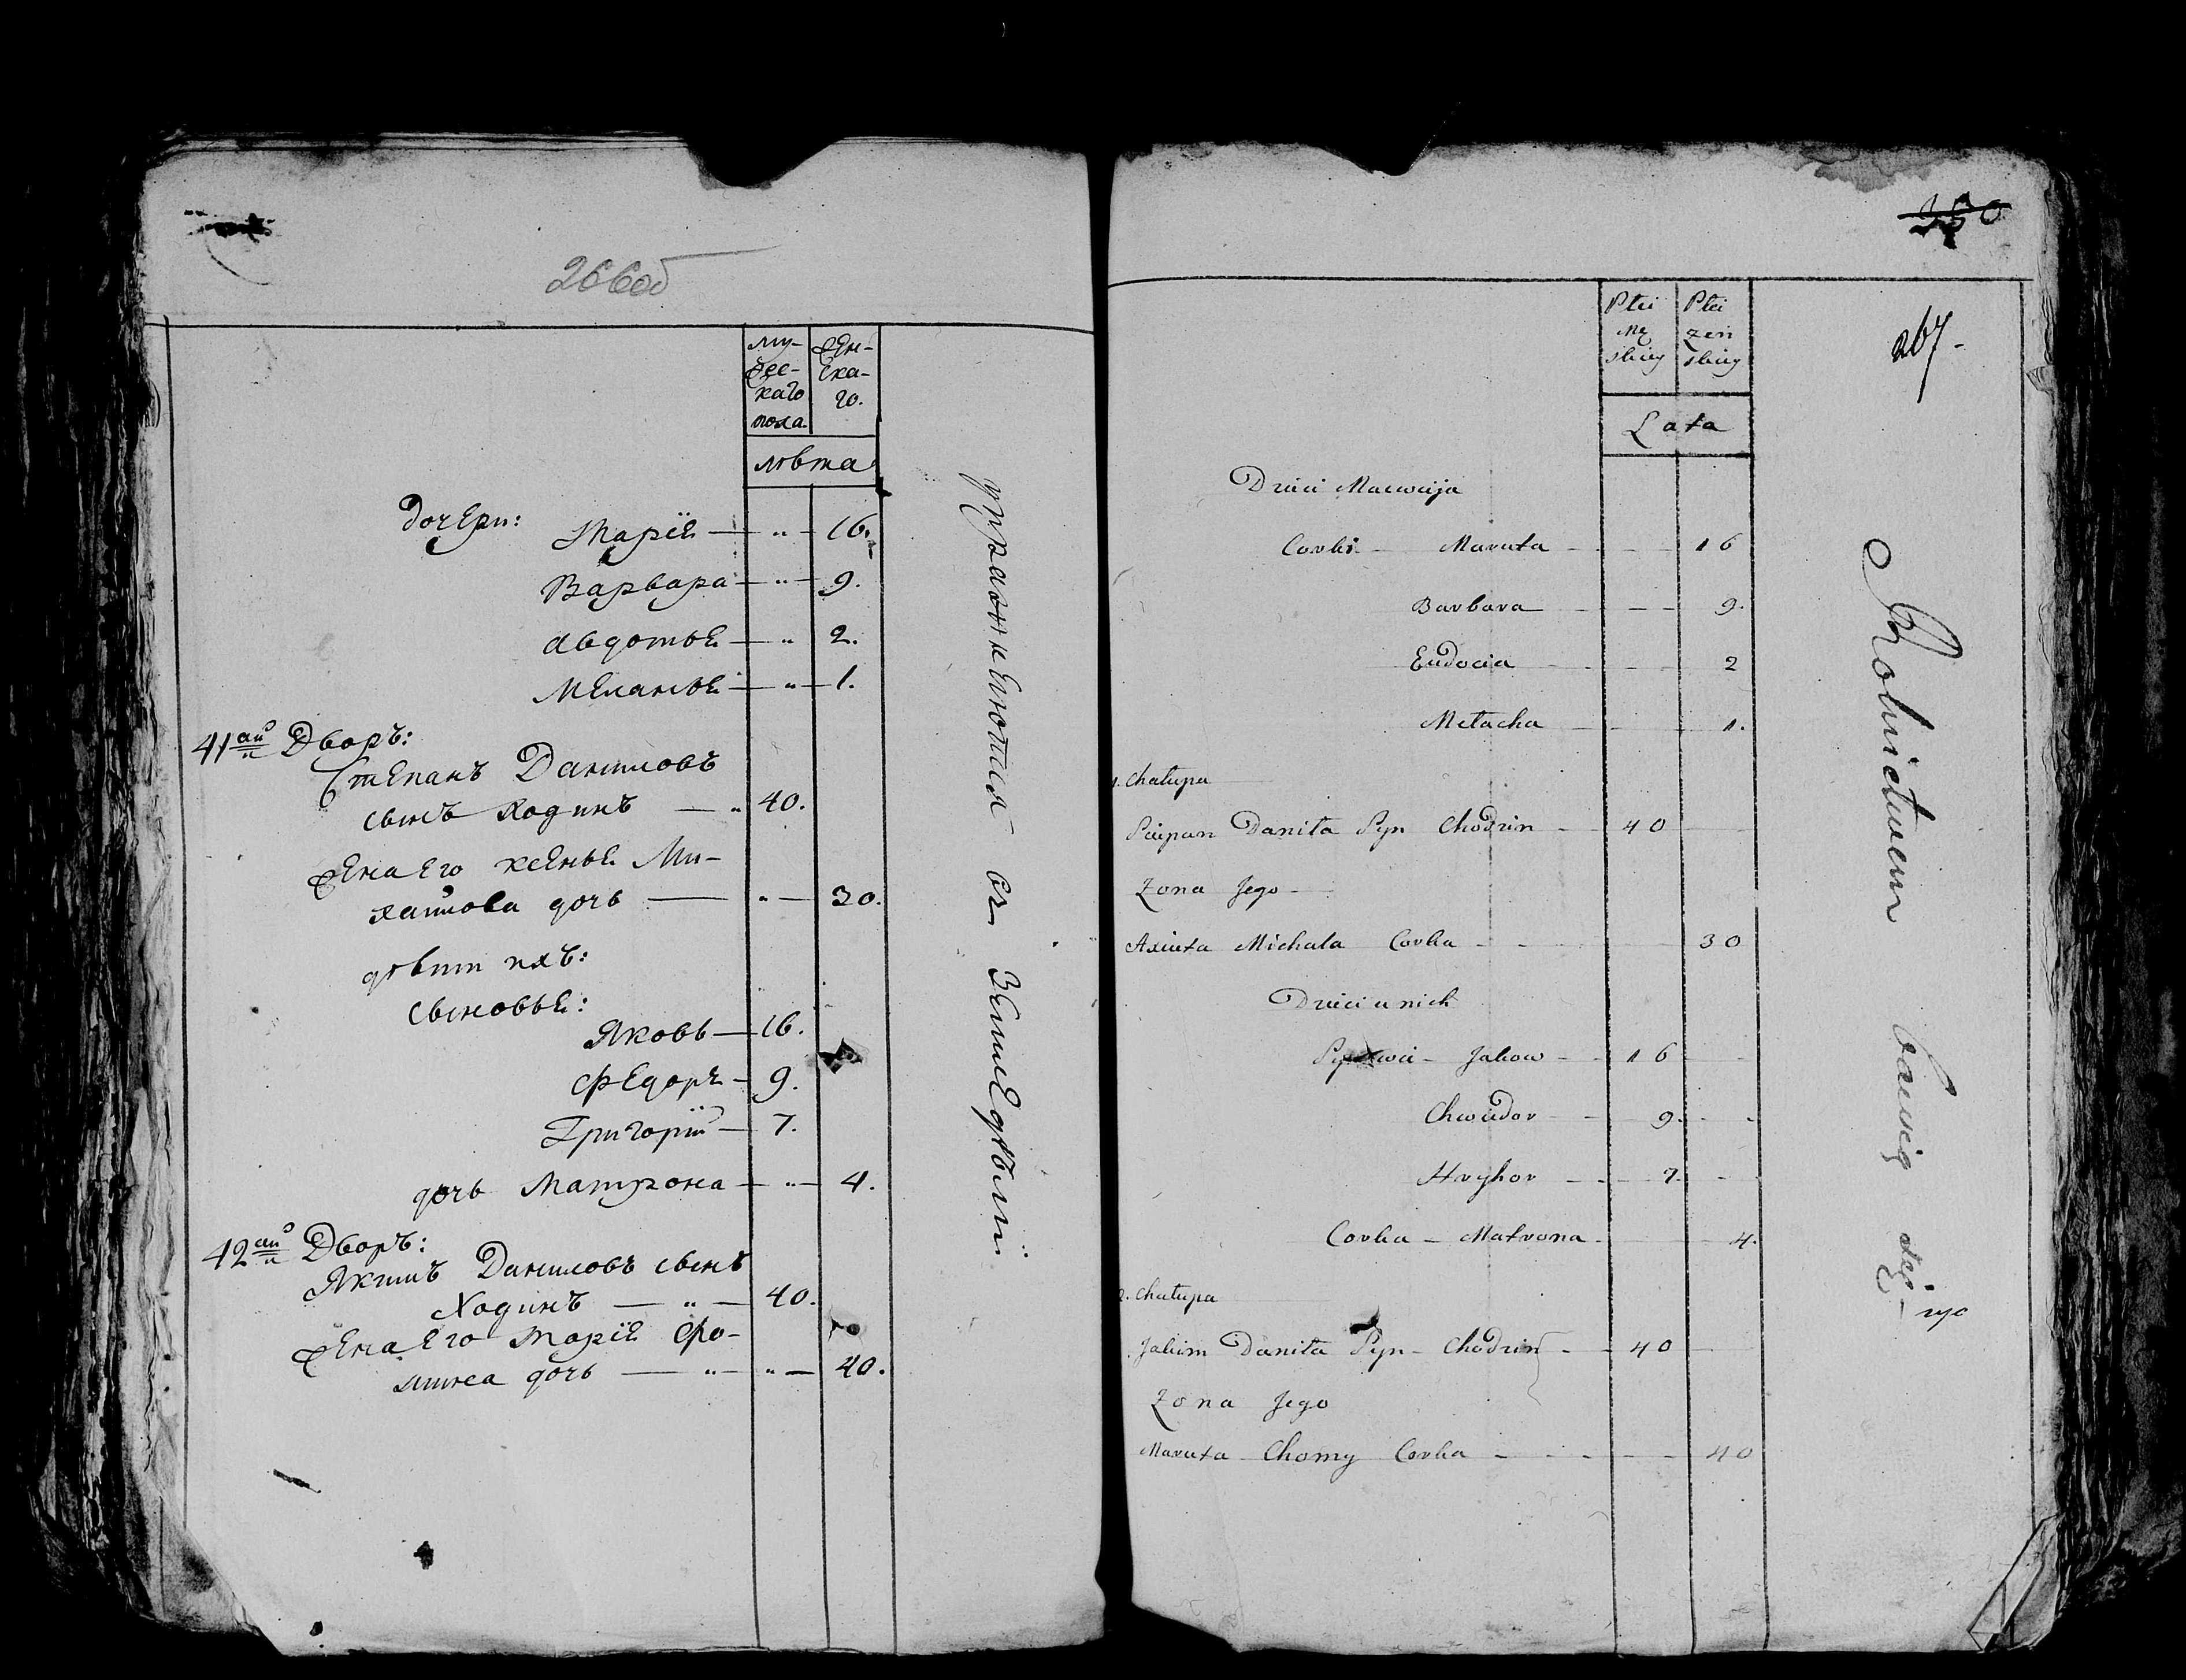 266об
му-
жес-
каго
пола
жен-
ска-
го.
лѣта
Дочери:
Марія — " — 16.
Варвара — " — 9.
Авдотья — " 2.
Меланья — " — 1.
41ай Дворъ:
Степанъ Даниловъ
сынъ Ходинъ — " 40.
жена его Ксенья Ми-
хайлова дочь — " — 30.
дѣти ихъ:
сыновья:
Яковъ — 16.
Федоръ — 9.
Григорій — 7.
дочь Матрона — " — 4.
42ай Дворъ:
Якимъ Даниловъ сынъ
Ходинъ — " — 40.
жена его Марія Фо-
мина дочь — " — " — 40.
упражняются въ земледѣліи.
350
267
Płci
Mę
skiey
Płci
żeń
skiey
Lata
Dzieci Macwieja
Corki — Maruta — 16
Barbara — 9.
Eudocia — 2
Mełacha — 1.
1. Chałupa
Sciepan Daniła Syn Chodzin — 40
Żona Jego —
Axiuta Michała Corka — 30
Dzieci u nich
Synowie — Jakow — 16
Chwiedor — 9.
Hryhor — 7.
Corka — Matrona — 4.
2. Chałupa
Jakim Daniła Syn — Chodzin — 40
Żona Jego
Maruta Chomy Corka — 40
Rolnictwem bawią się